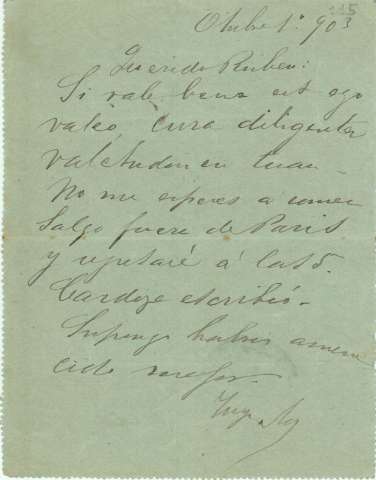 115
Otubre 1º 903
Querido Ruben:
Si vale bene est ego
valeo, cura diligenter
valetudinem tuam—
No me esperes a comer
Salgo fuera de Paris
y regresaré á las 5.
Cardoze escribió—
Supongo habrás amane
cido mejor.